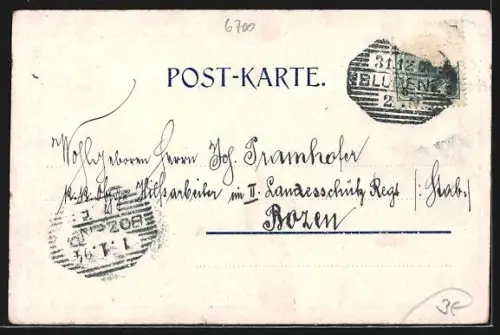 6700
POST-KARTE.
31.12.0
BLUDENZ
2
Wohlgeboren Herrn Joh. Tramhofer
k.k. Hilfsarbeiter im II. Landesschütz Regt /: Stab :/
Bozen
BOZEN
1.1.
3F